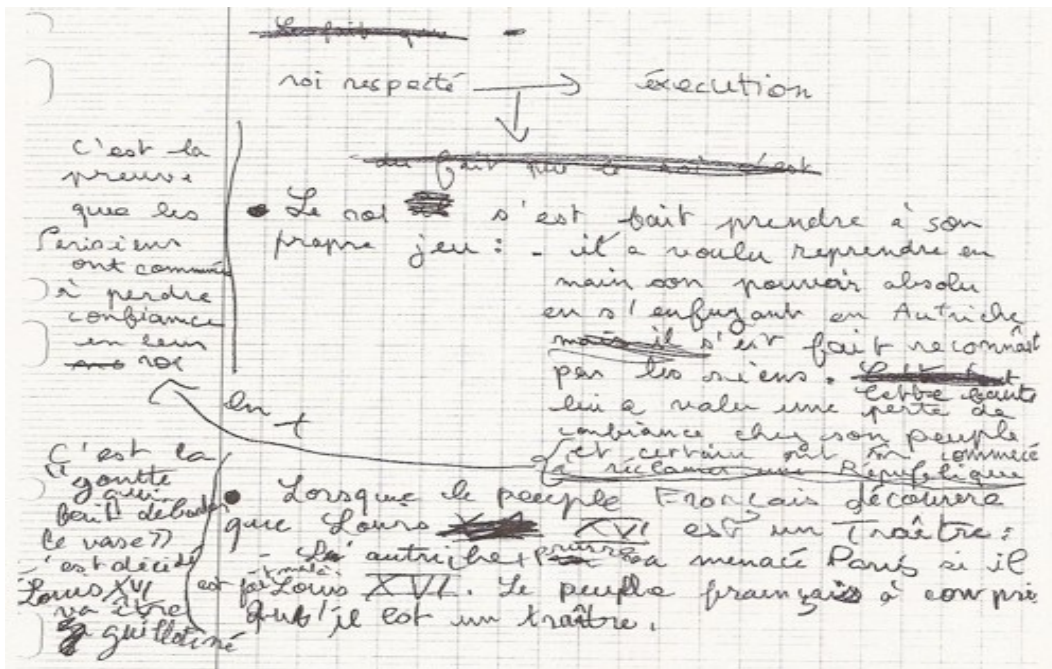 roi respecté → éxecution
C'est la
preuve
que les
Parisiens
ont commencé
à perdre
confiance
en leur
roi
• Le roi s'est fait prendre à son
propre jeu : - il a voulu reprendre en
main son pouvoir absolu
en s'enfuyant en Autriche
mais il s'est fait reconnaît
par les siens.
Cette faute
lui a valu une perte de
confiance chez son peuple
et certain ont commecé
à réclamer une République
En +
C'est la
"goutte
qui
fait déborder
le vase"
c'est décidé
Louis XVI
va être
guillotiné
• Lorsque le peuple Français découvre
que Louis XVI est un Traître :
- L'autriche + a menacé Paris si il
est fait Louis XVI. Le peuple français à compri
qu'il est un traître.